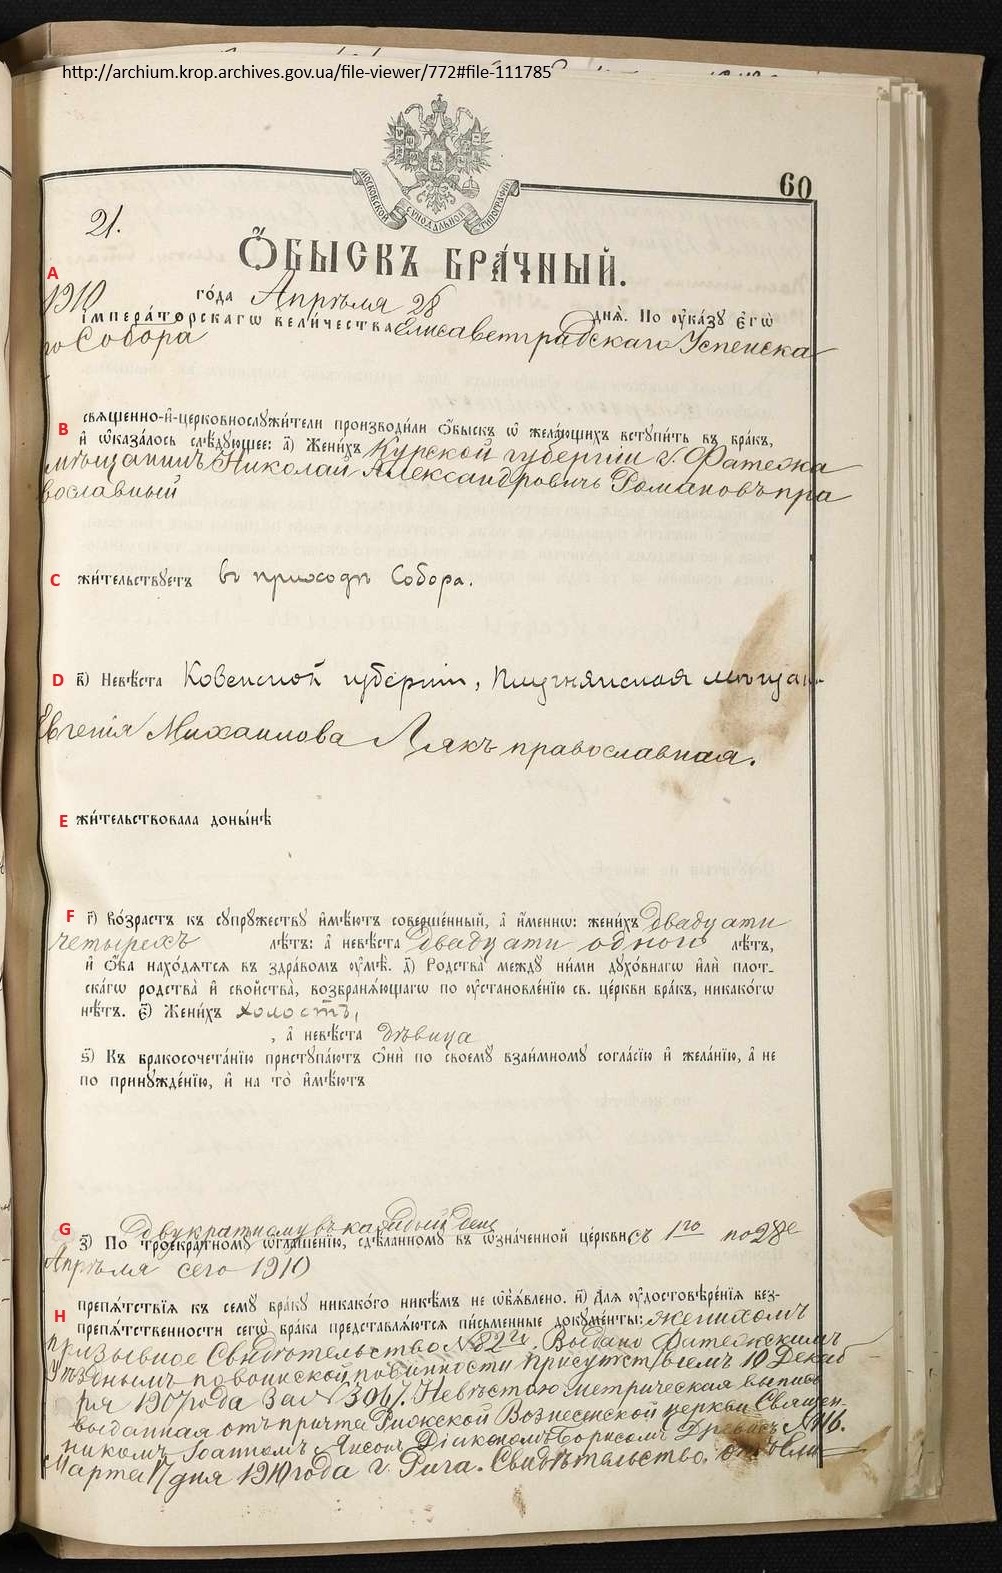 http://archium.krop.archives.gov.ua/file-viewer/772#file-111785
МОСКОВСКОЙ СУНОДАЛЬНОЙ ТИПОГРАФІИ
60
21.
Ѻ҆БЫСКЪ БРА́ЧНЫЙ.
A
1910 го́да Апрѣля 28 дня̀. По ᲂу҆ка́зꙋ є҆гѡ̀
і҆мпера́торскагѡ вели́чества Елисаветградскаго Успенска
го Собора
B свѧще́нно-и҆-церковнослꙋжи́тели производи́ли ѻ҆́быскъ ѡ҆ жела́ющихъ вступи́ть въ бра́къ,
и҆ ѡ҆каза́лось слѣ́дꙋющее: а҃) Жени́хъ Курской губерніи г. Фатежа
мѣщанинъ Николай Александровичъ Романовъ пра
вославный
C жи́тельствꙋетъ въ приходѣ Собора.
D в҃) Невѣ́ста Ковенской губерніи, Плунгянская мѣщан
Евгенія Михаилова Лякъ православная.
E жи́тельствовала доны́нѣ
F г҃) Во́зрастъ къ сꙋпрꙋ́жествꙋ и҆мѣ́ютъ соверше́нный, а҆ и҆́меннѡ: жени́хъ двадцати
четырехъ лѣ́тъ: а҆ невѣ́ста двадцати одного лѣ́тъ,
и҆ ѻ҆́ба нахо́дятся въ здра́вомъ ᲂу҆мѣ̀. д҃) Родства̀ междꙋ̀ ни́ми дꙋхо́внагѡ и҆лѝ плот-
ска́гѡ родства̀ и҆ сво́йства̀, возбраня́ющагѡ по ᲂу҆становле́нїю св. це́ркви бра́къ, никако́гѡ
нѣ́тъ. є҃) Жени́хъ холостъ,
, а҆ невѣ́ста дѣвица
ѕ҃) Къ бракосочета́нїю пристꙋпа́ютъ ѻ҆нѝ по своемꙋ̀ взаи́мномꙋ согла́сїю и҆ жела́нїю, а҆ не
по принꙋжде́нїю, и҆ на то̀ и҆мѣ́ютъ
G двукратному въ каждый день
з҃) По троекра́тномꙋ ѡ҆глаше́нїю, сдѣ́ланномꙋ въ ѡ҆зна́ченной це́ркви съ 1го по 28е
Апрѣля сего 1910
H препя́тствїя къ семꙋ̀ бра́кꙋ никако́го никѣ́мъ не ѡ҆б̾я́влено. и҃) Для ᲂу҆достовѣ́ренїя без-
препя́тственности сегѡ̀ бра́ка представля́ются пи́сьменные докꙋме́нты: женихомъ
призывное Свидѣтельство № 82й. Выдано Фатежскимъ
Уѣзднымъ по воинской повинности Присутствіемъ 10 Декаб
ря 1907 года За № 3067. Невѣстою метрическая выпись
выданная отъ причта Рижской Вознесенской церкви Священ-
никомъ Іоанномъ Янсонъ Діакономъ Борисомъ Древись № 116.
Марта 17 дня 1910 года г. Рига. Свидѣтельство.